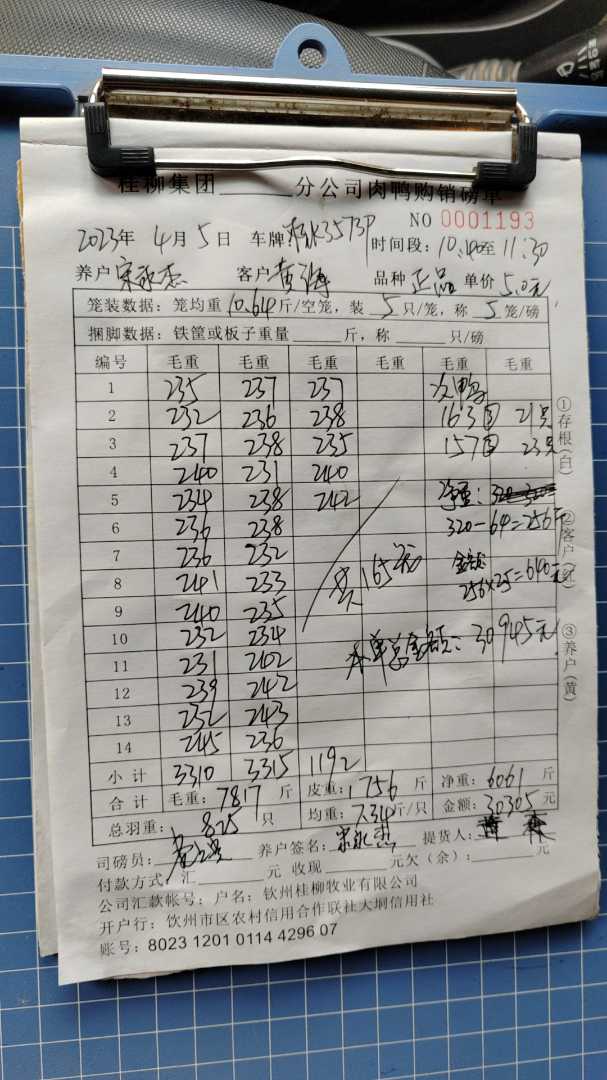 桂柳集团______分公司肉鸭购销磅单
NO 0001193
2023年 4月 5日 车牌 桂K3573P 时间段：10.40至 11.30
养户 宋永杰 客户 黄海 品种 正品 单价 5.0元
笼装数据：笼均重 10.64 斤/空笼，装 5 只/笼，称 5 笼/磅
捆脚数据：铁筐或板子重量______斤，称______只/磅
编号 毛重 毛重 毛重 毛重 毛重 毛重
1 235 237 237 次鸭
2 232 236 238 163斤 21只
3 237 238 235 157斤 23只
4 240 231 240
5 234 238 242 净重：
6 236 238 320-64=256斤
7 236 232 金额
8 241 233 共165笼 256×2.5=640元
9 240 235
10 232 234 本单总金额：30945元
11 231 242
12 239 242
13 232 243
14 245 236
小计 3310 3315 1192
合计 毛重：7817 斤 皮重：1756 斤 净重：6061 斤
总羽重：825 只 均重：7.34 斤/只 金额：30305 元
司磅员： 养户签名：宋永杰 提货人：
付款方式：汇______元 收现______元欠（余）：______元
公司汇款帐号：户名：钦州桂柳牧业有限公司
开户行：钦州市区农村信用合作联社大垌信用社
账号：8023 1201 0114 4296 07
①存根（白）
②客户（红）
③养户（黄）